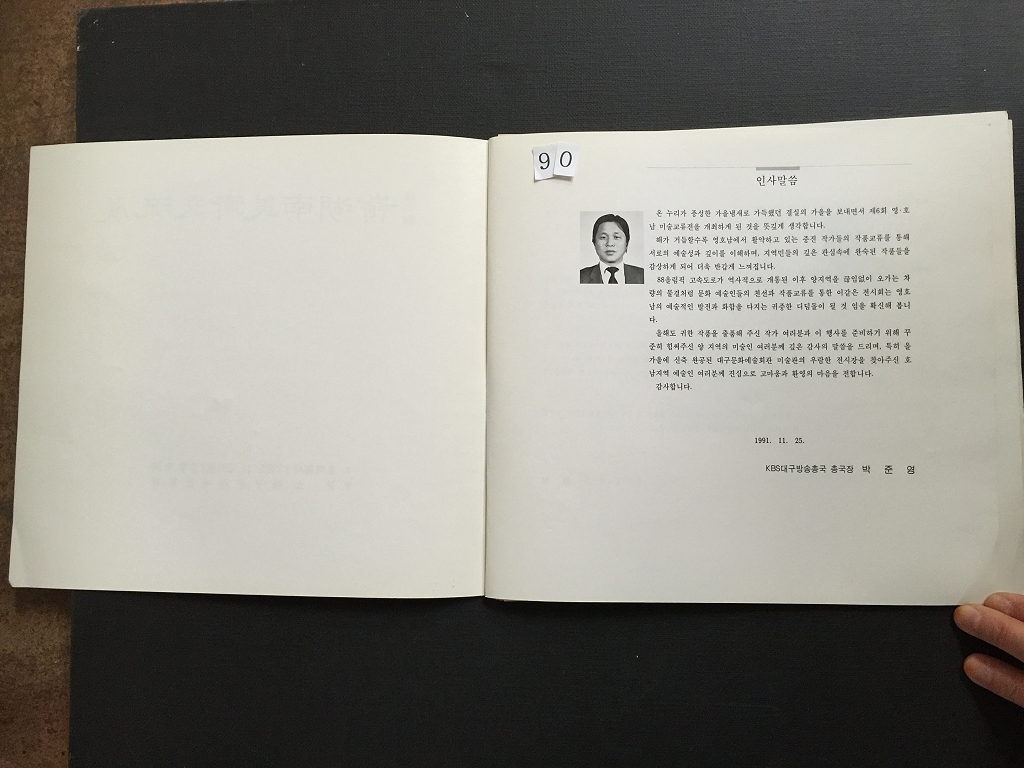 90
인사말씀
온 누리가 풍성한 가을냄새로 가득했던 결실의 가을을 보내면서 제6회 영·호
남 미술교류전을 개최하게 된 것을 뜻깊게 생각합니다.
해가 거듭할수록 영호남에서 활약하고 있는 중진 작가들의 작품교류를 통해
서로의 예술성과 깊이를 이해하며, 지역민들의 깊은 관심속에 완숙된 작품들을
감상하게 되어 더욱 반갑게 느껴집니다.
88올림픽 고속도로가 역사적으로 개통된 이후 양지역을 끊임없이 오가는 차
량의 물결처럼 문화 예술인들의 친선과 작품교류를 통한 이같은 전시회는 영호
남의 예술적인 발전과 화합을 다지는 귀중한 디딤돌이 될 것 임을 확신해 봅니
다.
올해도 귀한 작품을 출품해 주신 작가 여러분과 이 행사를 준비하기 위해 꾸
준히 힘써주신 양 지역의 미술인 여러분께 깊은 감사의 말씀을 드리며, 특히 올
가을에 신축 완공된 대구문화예술회관 미술관의 우람한 전시장을 찾아주신 호
남지역 예술인 여러분께 진심으로 고마움과 환영의 마음을 전합니다.
감사합니다.
1991. 11. 25.
KBS대구방송총국 총국장 박 준 영